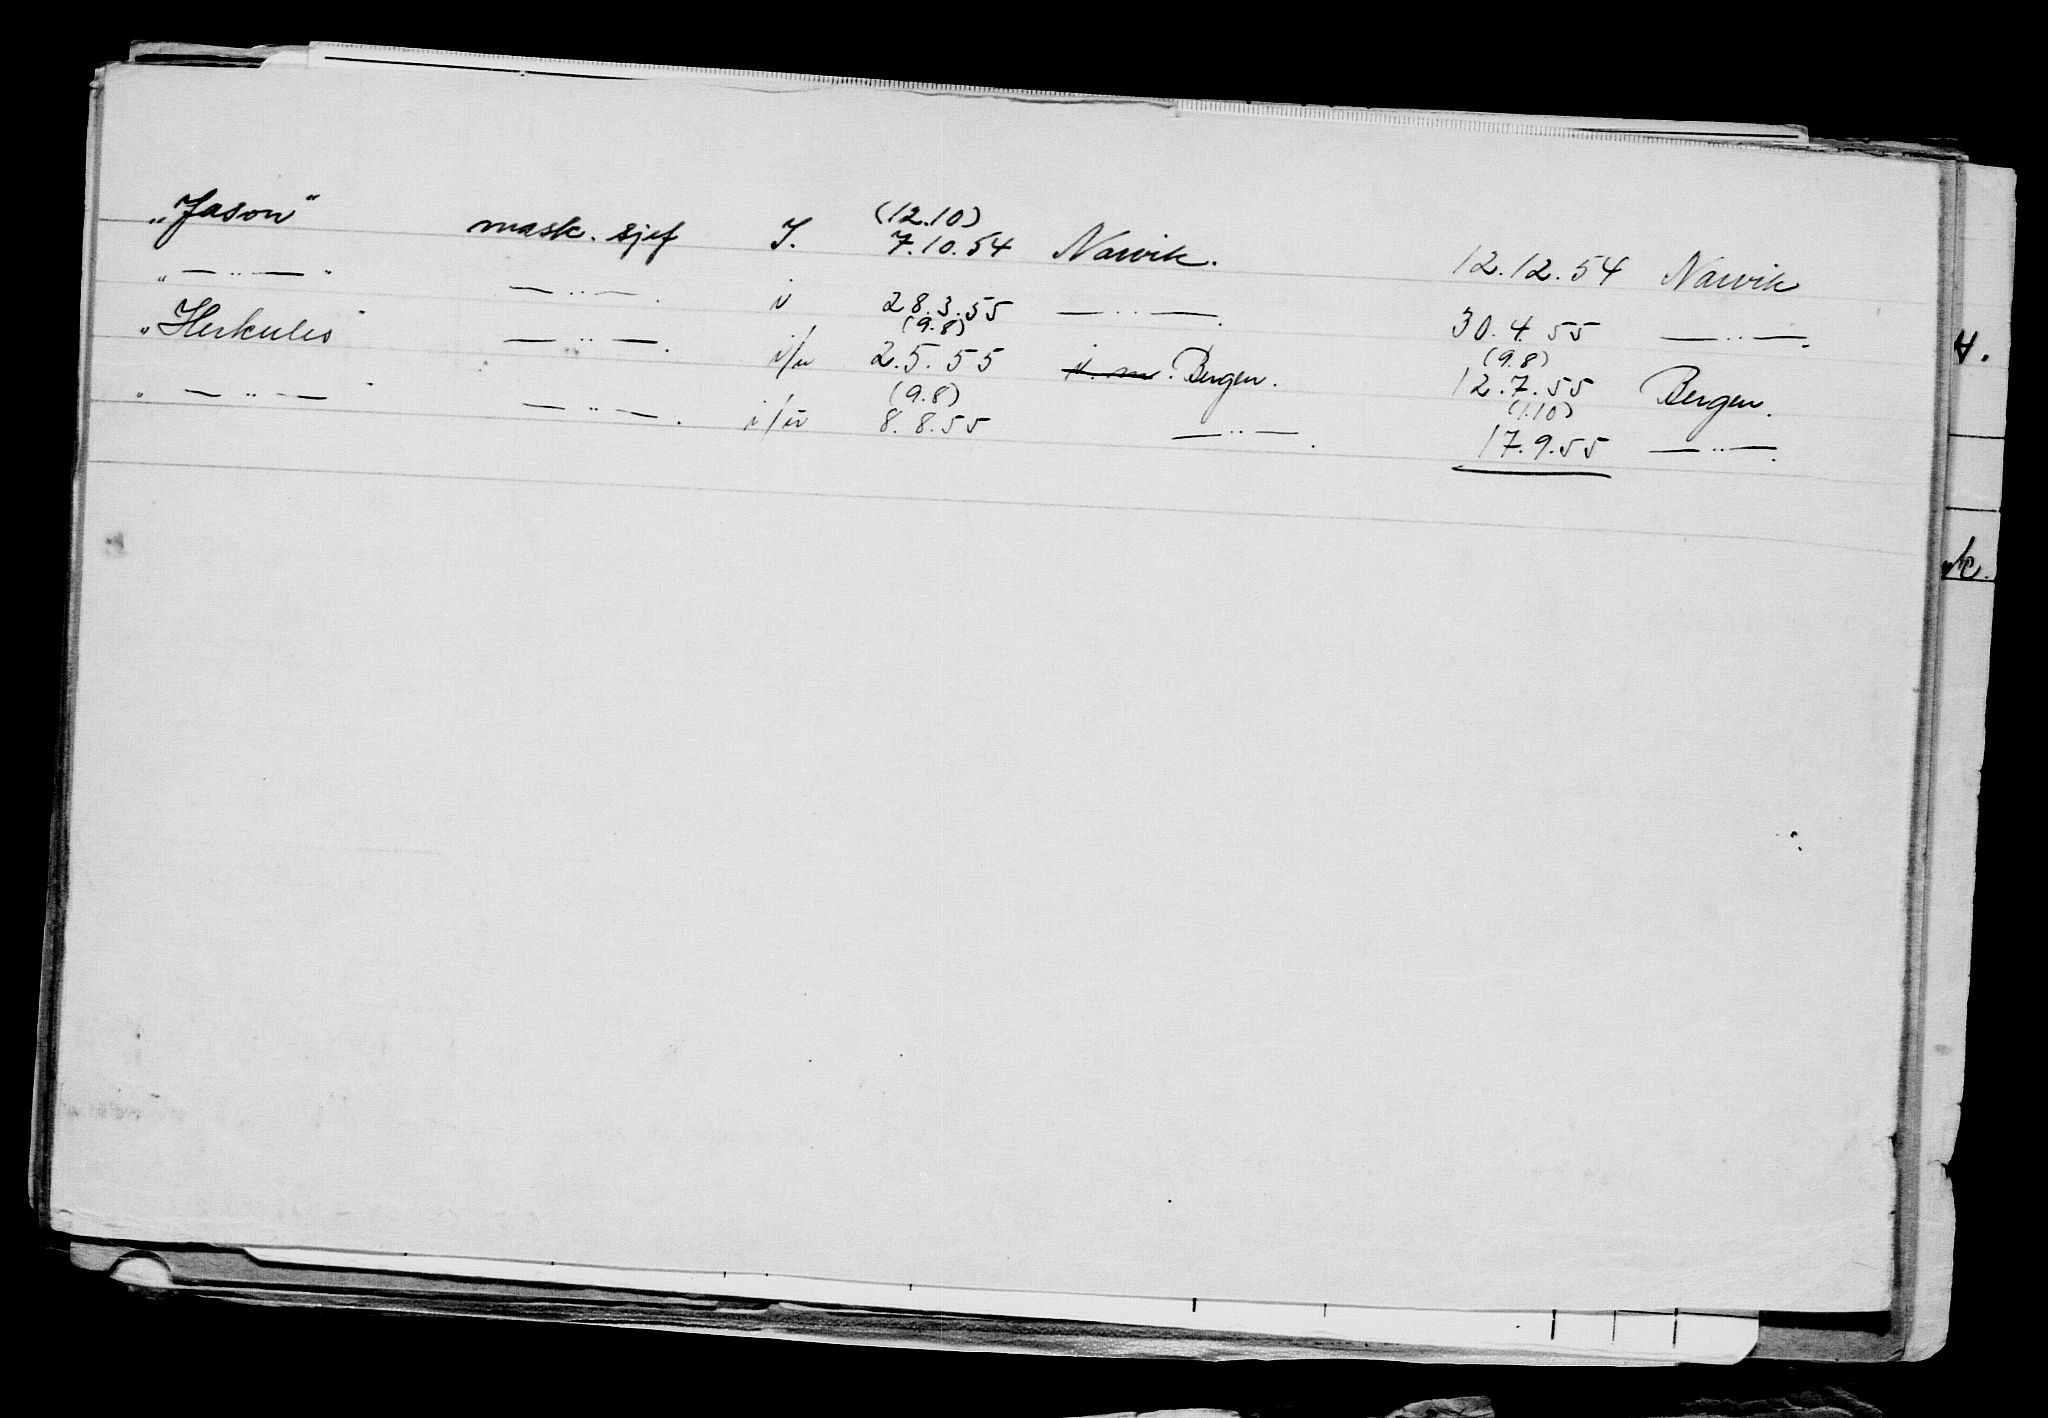 „Jason" mask. sjef I. (12.10) 7.10.54 Narvik. 12.12.54 Narvik
„ — „ — " — „ — . i 28.3.55 — „ — . 30.4.55 — „ — .
„Herkules" — „ — . i/u (9.8) 2.5.55 Bergen. (9.8) 12.7.55 Bergen.
„ — „ — " — „ — . i/u (9.8) 8.8.55 — „ — . (1.10) 17.9.55 — „ — .
k.